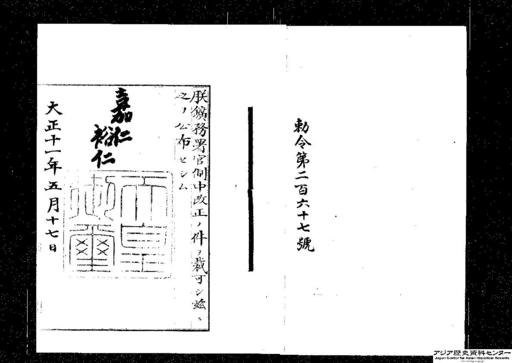 勅令第二百六十七號
朕鑛務署官制中改正ノ件ヲ裁可シ茲ニ
之ヲ公布セシム
嘉仁
裕仁
天皇
御璽
大正十一年五月十七日
アジア歴史資料センター
Japan Center for Asian Historical Records